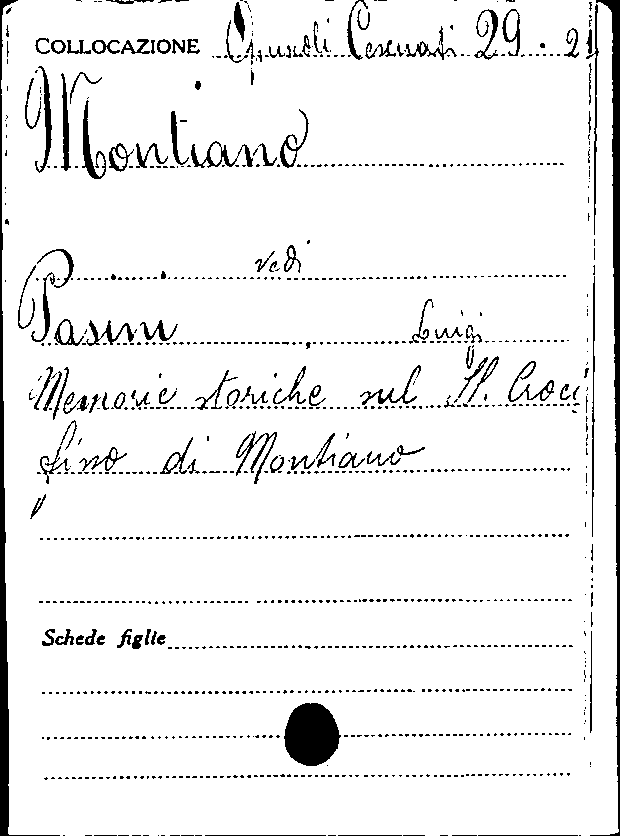 COLLOCAZIONE Opuscoli Cesenati 29. 21
Montiano
vedi
Pasini, Luigi
Memorie storiche sul SS. Croci
fisso di Montiano
Schede figlie